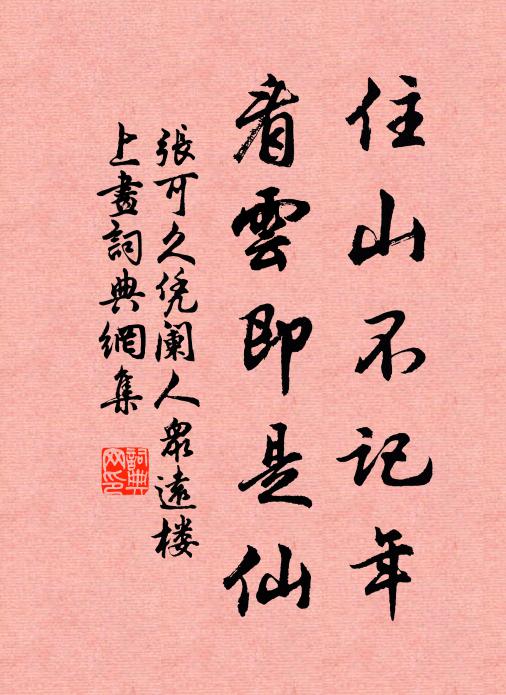 住山不记年
看雲即是仙
張可久凭阑人眾遠楼
上畫詞典網集
詞典网印